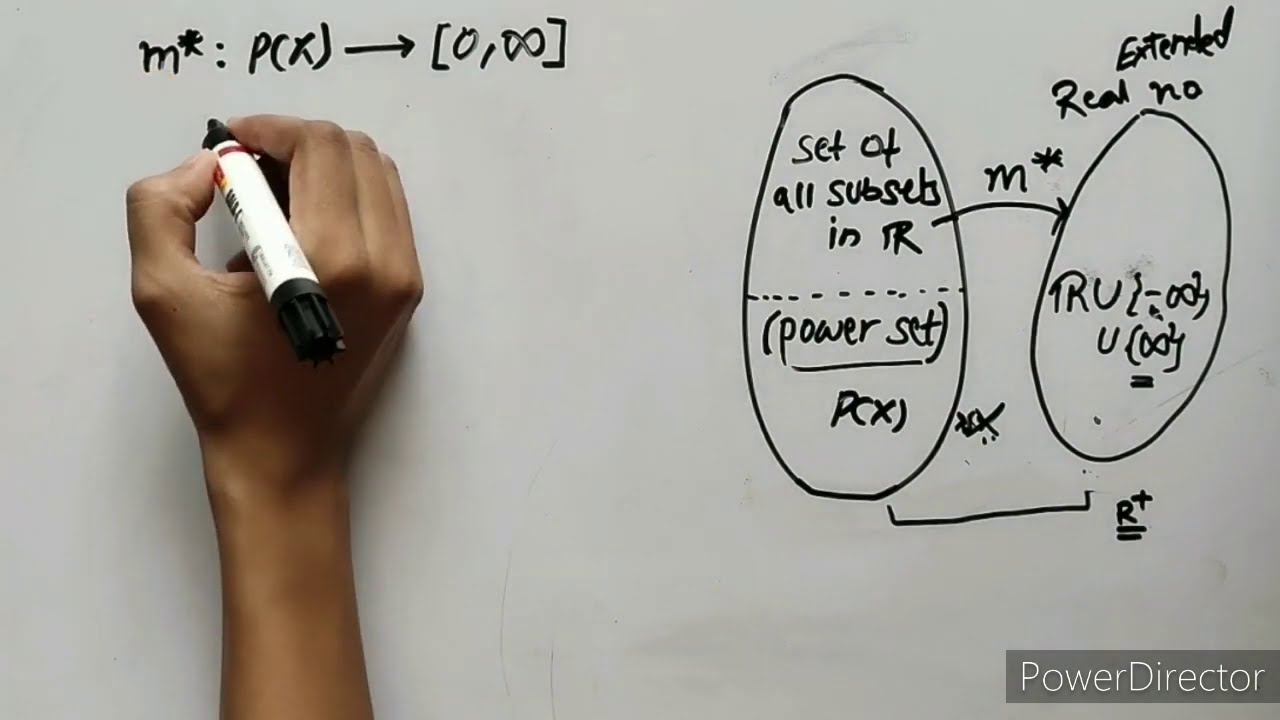 m* : P(X) → [0,∞]
Extended
Real no
set of
all subsets
in ℝ
(power set)
P(X)
m*
ℝ∪{-∞}
∪{∞}
R⁺
PowerDirector